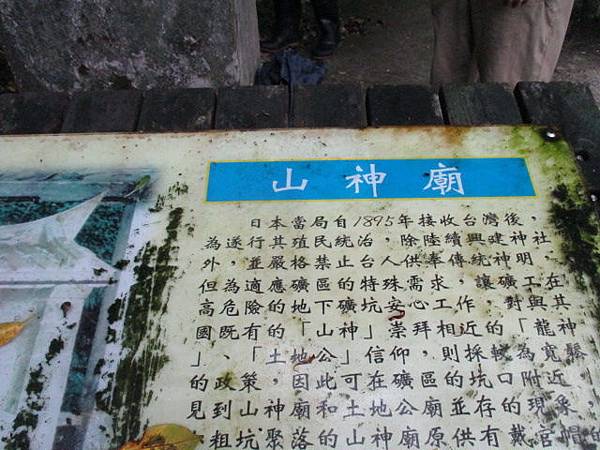 山神廟
日本當局自1895年接收台灣後,
為遂行其殖民統治,除陸續興建神社
外,並嚴格禁止台人供奉傳統神明,
但為適應礦區的特殊需求,讓礦工在
高危險的地下礦坑安心工作,對與其
國既有的「山神」崇拜相近的「龍神
」、「土地公」信仰,則採較為寬鬆
的政策,因此可在礦區的坑口附近
見到山神廟和土地公廟並存的現象
粗坑聚落的山神廟原供有戴官帽的